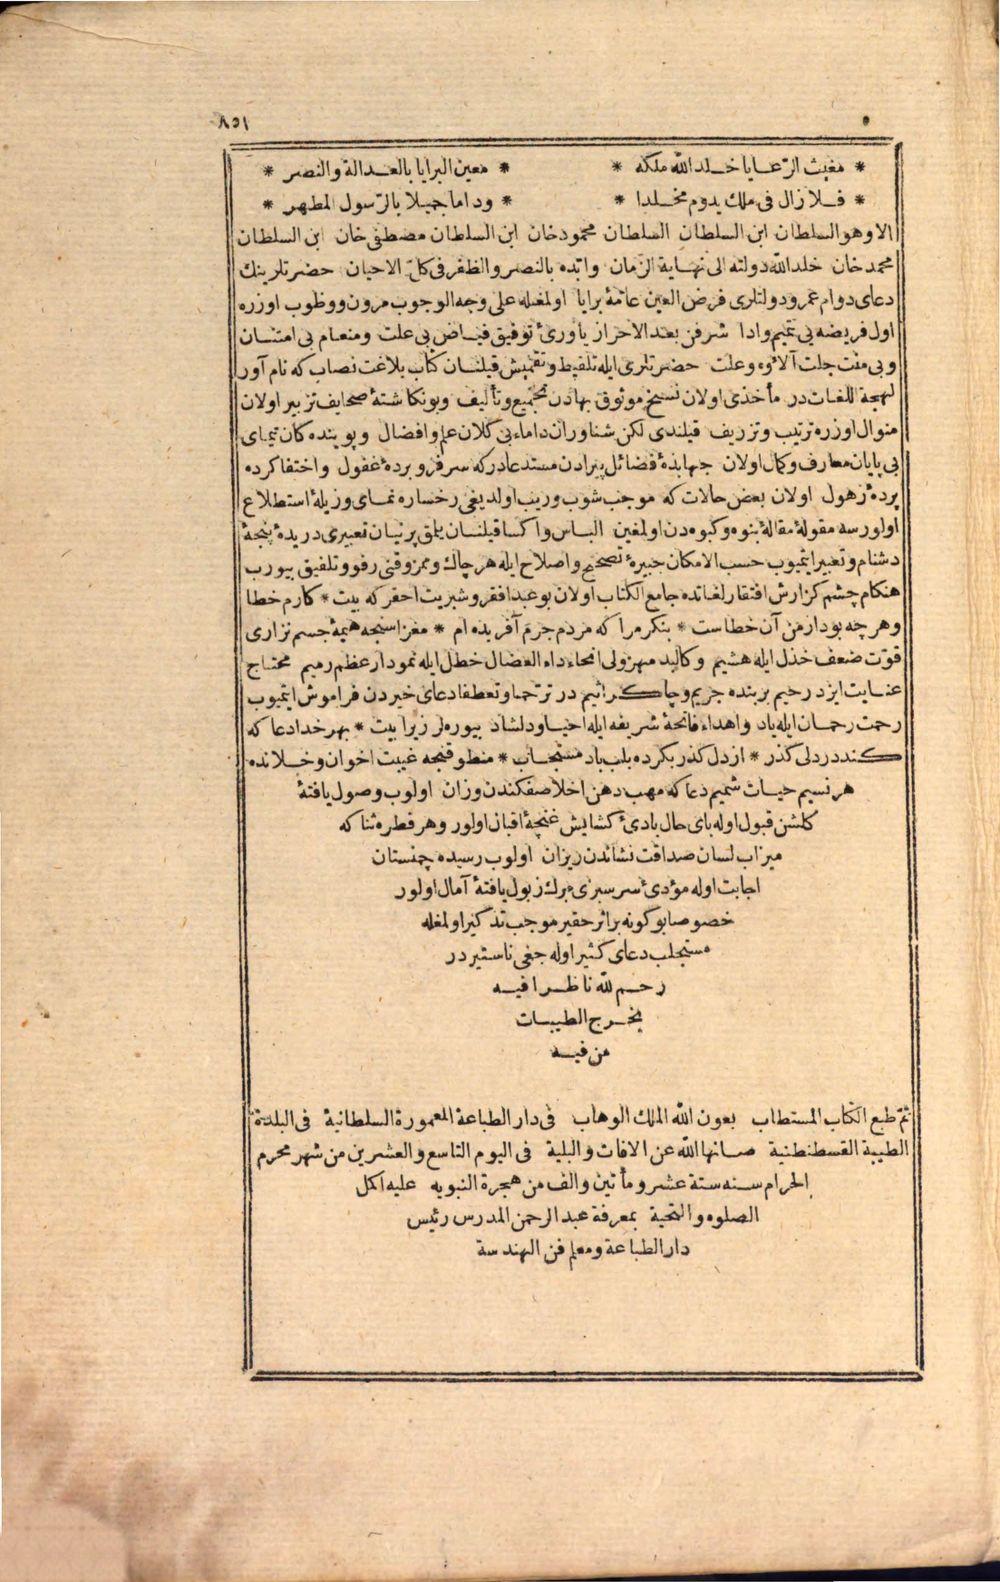 ٨٥١
* مغيث الرّعايا خلد الله ملكه * * معين البرايا بالعدالة والنصر *
* فلا زال فى ملك يدوم مخلدا * * وداما جميلا بالرّسول المطهر *
الا وهو السلطان ابن السلطان السلطان محمود خان ابن السلطان مصطفى خان ابن السلطان
محمد خان خلد الله دولته الى نهاية الزمان وايده بالنصر والظفر فى كلّ الاحيان حضرتلرينك
دعاى دوام عمر ودولتلرى فرض العين عامّۀ برايا اولمغله على وجه الوجوب مرون ووظوب اوزره
اول فريضه يى تتميم وادا شرفن بعد الاحراز ياورئ توفيق فياض بى علت ومنعام بى امتنان
وبى منت جلت آلاؤه وعلت حضرتلرى ايله تلفيط وتقميش قيلنان كتاب بلاغت نصاب كه نام آور
لهجة اللغات در مأخذى اولان نسخ موثوق بهادن تجميع وتأليف وبو نكاشتۀ صحايف تزبير اولان
منوال اوزره ترتيب وتزريف قيلندى لكن شناوران داماء بى كلان علم وافضال وپويندەكان تيماى
بى پايان معارف وكمال اولان جهابذۀ فضائل پيرادن مستدعادر كه سرفرو بردۀ غفول واختفا كرده
پردۀ زهول اولان بعض حالات كه موجب شوب وريب اولديغى رخساره نماى وزيلۀ استطلاع
اولورسه مقولۀ مقالۀ بنوه وكبوه دن اولمغين الباس واكسا قيلنان يلمق پرنيان تعبيرى دريدۀ پنجۀ
دشنام وتعيير ايتميوب حسب الامكان حبيرۀ تصحيح واصلاح ايله هر چاك وممزوقنى رفو وتلفيق بيورب
هنكام چشم كزارش افتقار لغاتده جامع الكتاب اولان بو عبد افقر وشبريت احقر كه بيت * كارم خطا
وهر چه بود از من آن خطاست * بنكر مرا كه مردم جرم آفريده ام * مغزاسنجه هيمۀ جسم نزارى
قوّت ضعف خذل ايله هشيم وكالبد مهزولى انحاء داء العضال خطل ايله نمودار عظم رميم محتاج
عنايت ايزد رحيم بر بنده جريم وچاكر اثيم در ترحما وتعطفا دعاى خيردن فراموش ايتميوب
رحمت رحمان ايله ياد واهداء فاتحۀ شريفه ايله احيا ودلشاد بيورەلر زيرا بيت * بهر خدا دعا كه
كند در دلى كذر * از دل كذر نكرده بلب باد مستجاب * منطوقنجه غيبت اخوان وخلانده
هر نسيم حيات شميم دعا كه مهب دهن اخلاصفكندن وزان اولوب وصول يافتۀ
كلشن قبول اوله باى حال بادئ كشايش غنچۀ اقبال اولور وهر قطرەء ثنا كه
ميزاب لسان صداقت نشاندن ريزان اولوب رسيده چمنستان
اجابت اوله مؤدئ سر سبزئ برك زبول يافتۀ آمال اولور
خصوصا بو كونه بر اثر حقير موجب تذكير اولمغله
مستجلب دعاى كثير اوله جغى ناستيردر
رحم لله ناظرا فيه
يخرج الطيبات
من فيه
تمّ طبع الكتاب المستطاب بعون الله الملك الوهاب فى دار الطباعة المعمورة السلطانية فى البلدة
الطيبة القسطنطنية صانها الله عن الافات والبلية فى اليوم التاسع والعشرين من شهر محرم
الحرام سنه ستة عشر ومأتين والف من هجرة النبويه عليه اكمل
الصلوه والتحية بمعرفة عبد الرحمن المدرس رئيس
دار الطباعة ومعلم فن الهندسة